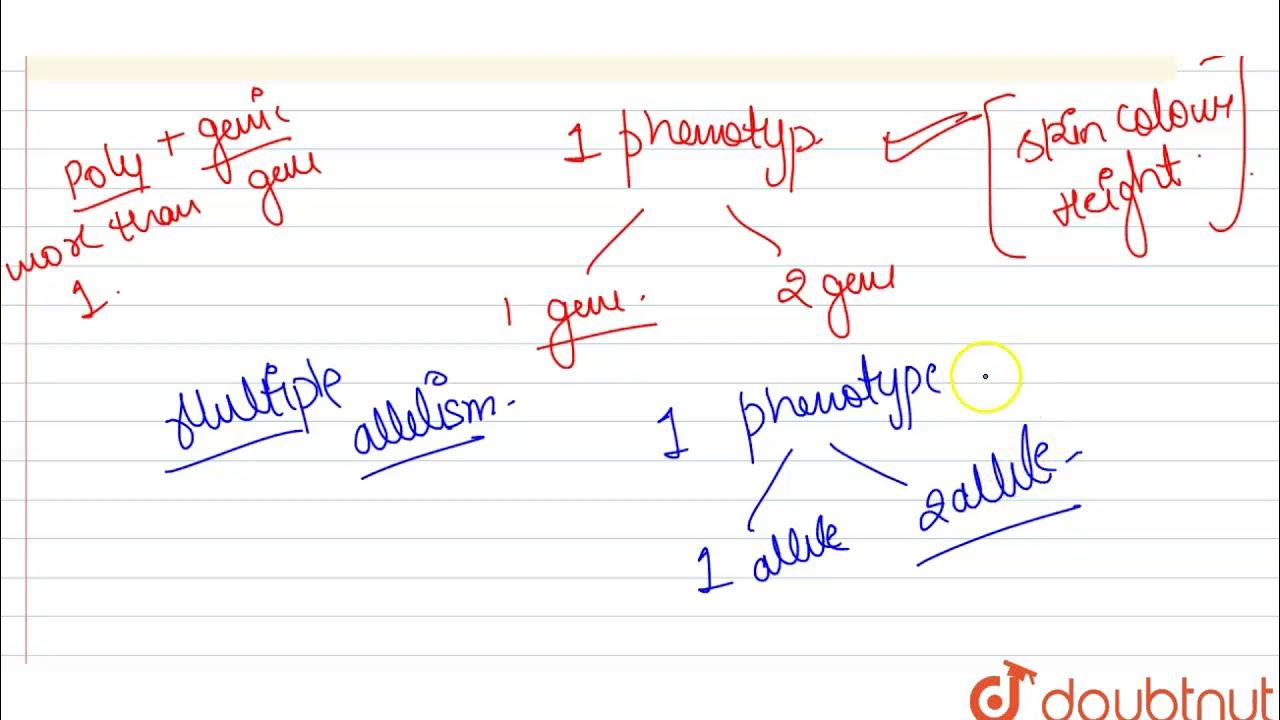 Poly + genic
more than gene
1.
1 phenotyp.
[skin colour
Height.]
1 gene.
2 gene
Multiple allelism.
1 phenotype
1 allele
2 allele
doubtnut